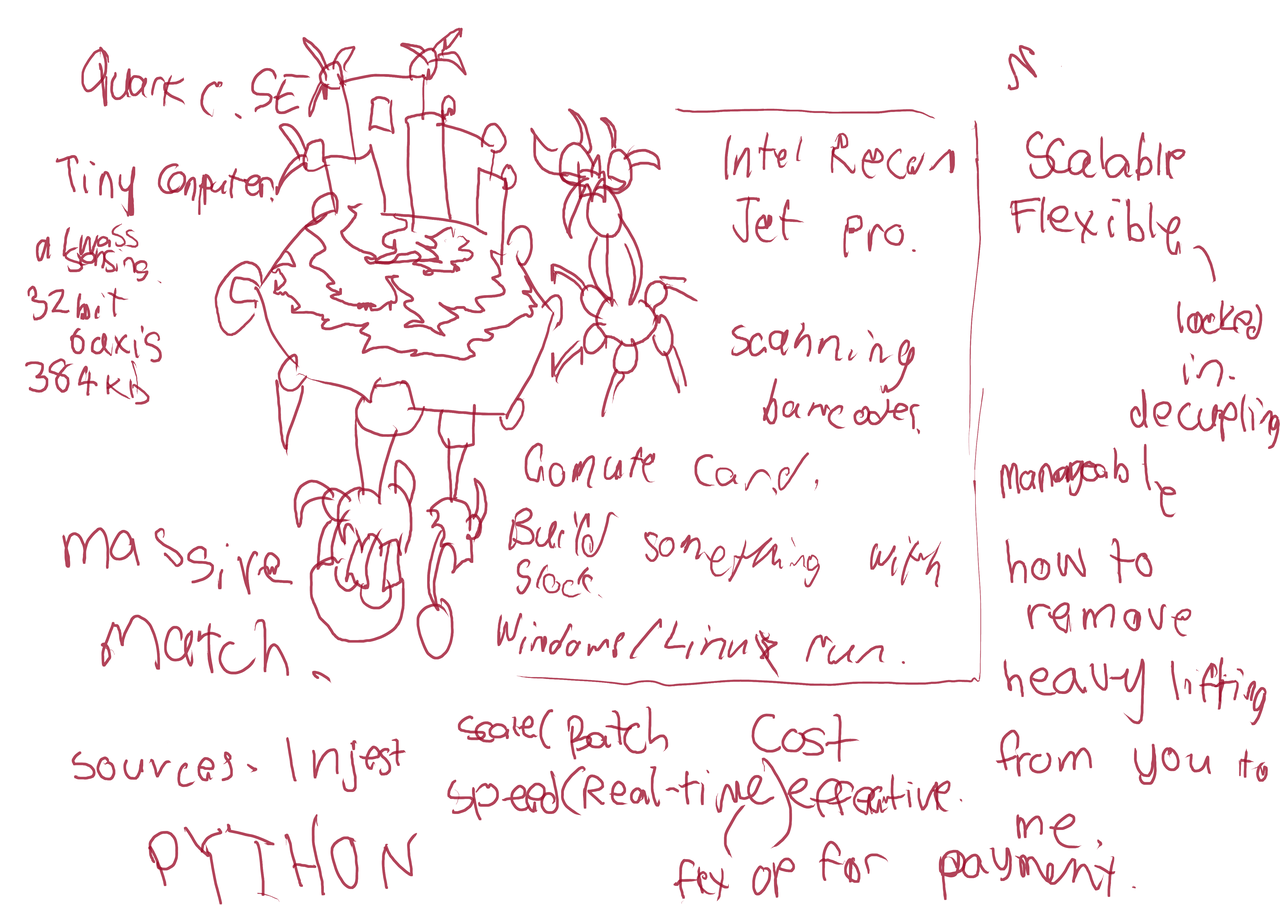 Quark C. SE
Tiny Computer.
a sensing.
32bit
6axis
384kb
massive
Match.
sources. Injest
PYTHON
Intel Recon
Jet pro.
scanning
barcodes.
Comute Card.
Build something with
Slack.
Windows/Linux run.
scale(Batch
speed(Real-time)
Cost
effective.
flex op for payment.
N
Scalable
Flexible,
locked
in.
decupling
manageable
how to
remove
heavy lifting
from you to
me.